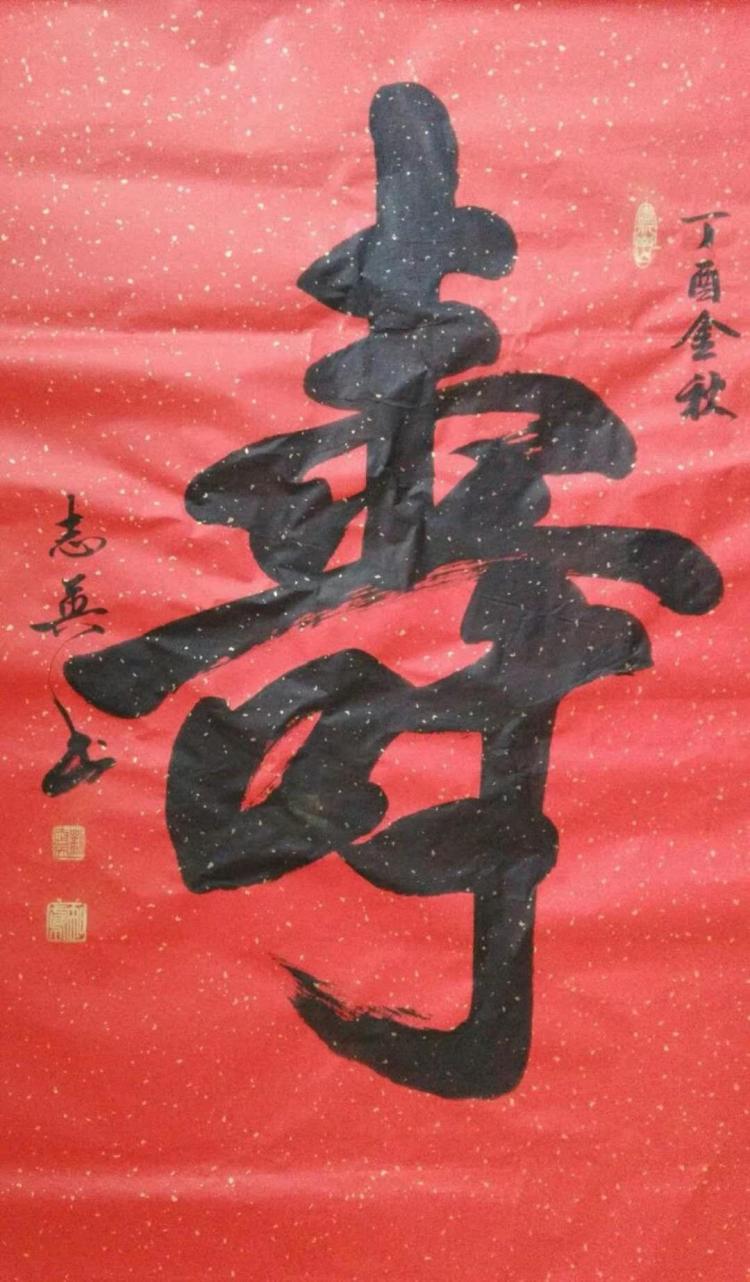 丁酉金秋
壽
志英书